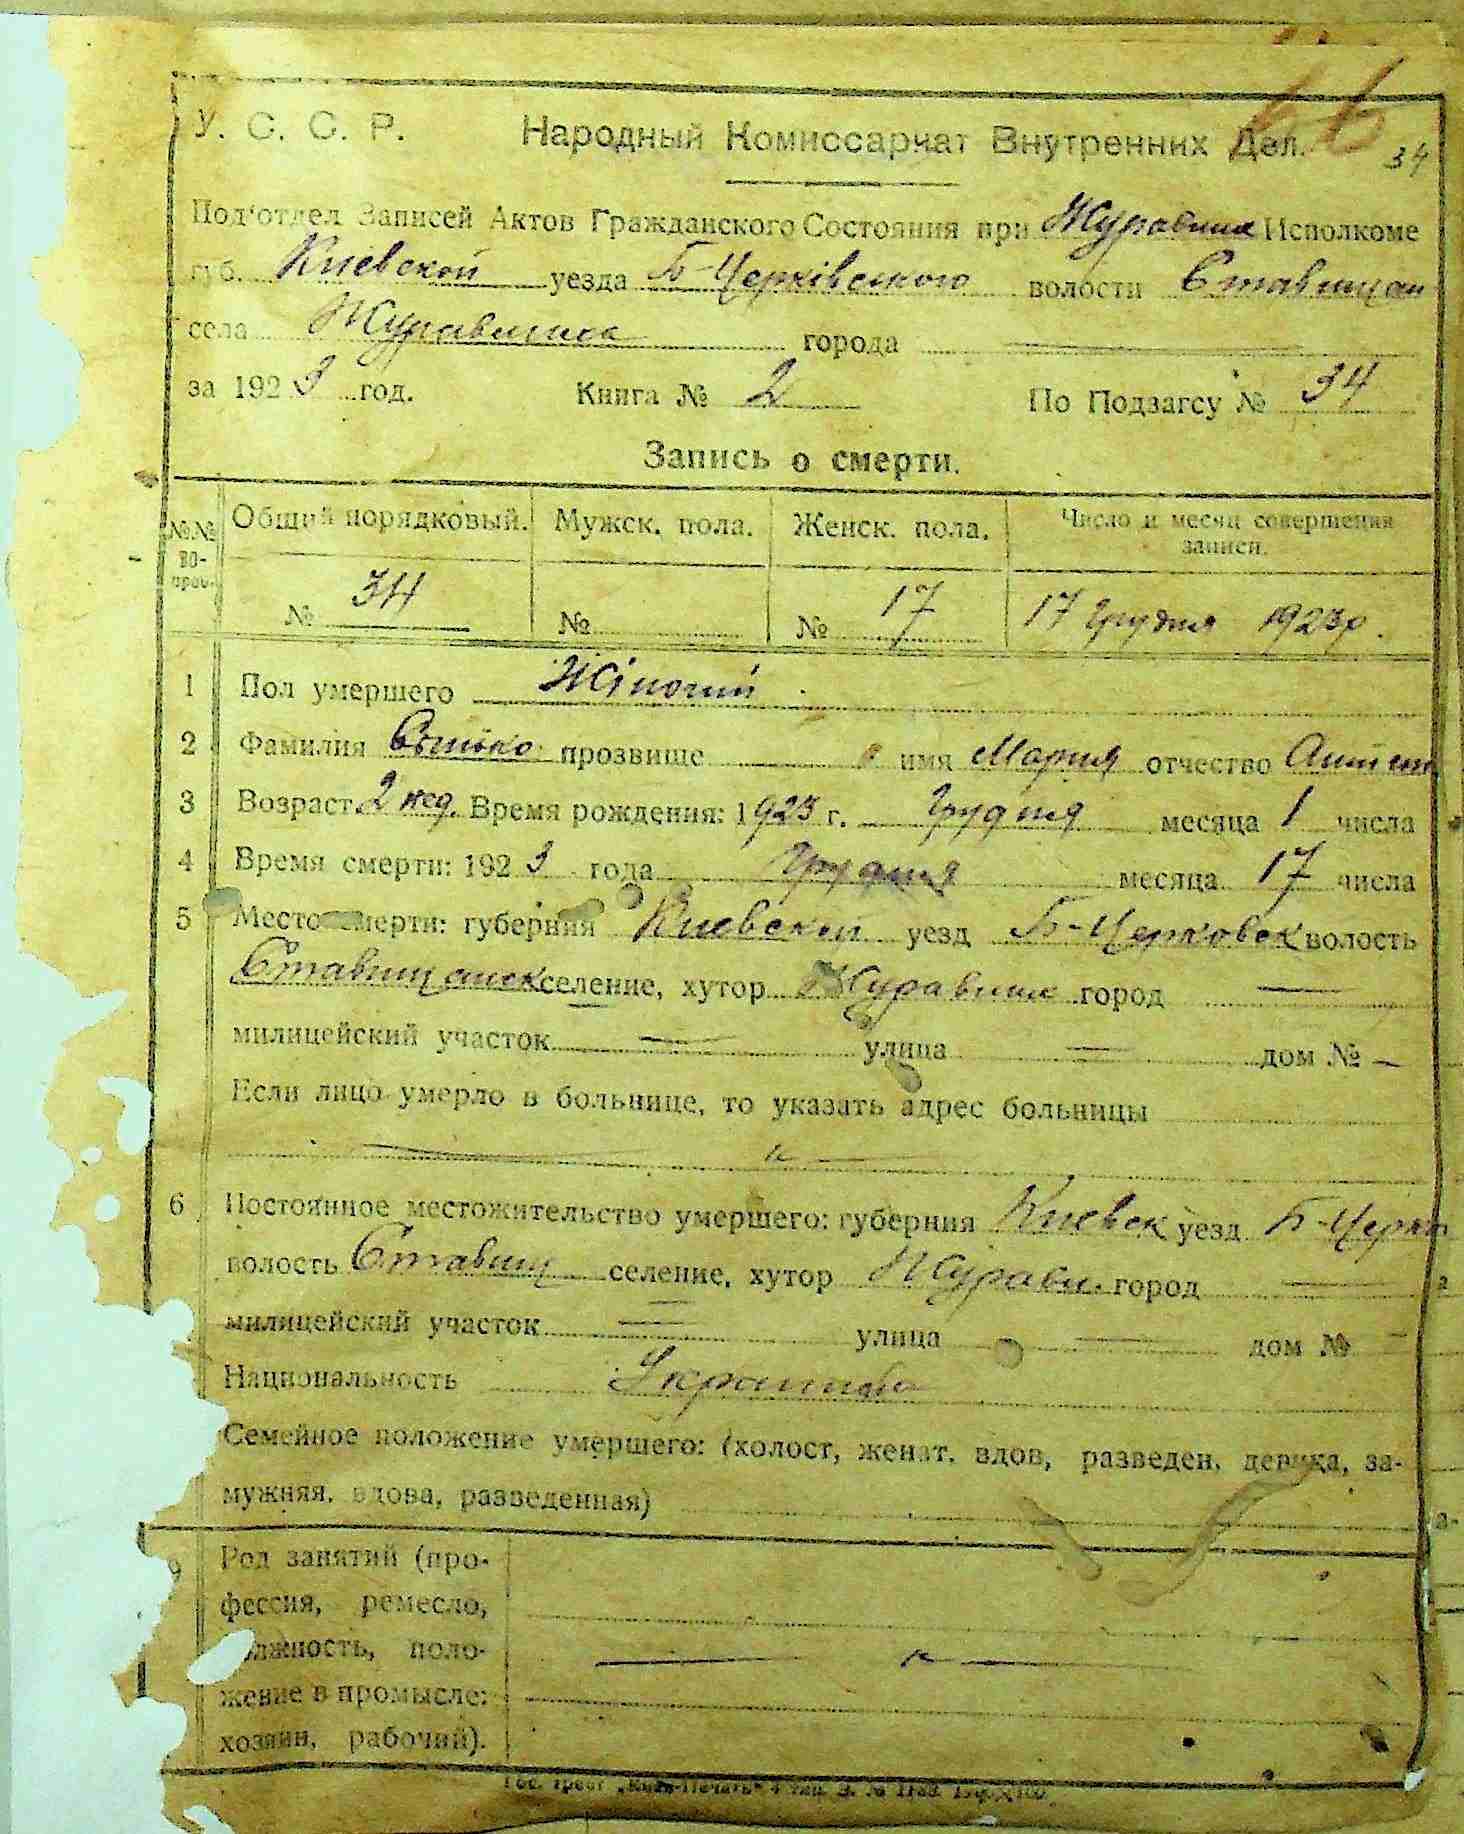 66
У. С. С. Р. Народный Комиссариат Внутренних Дел. 34
Под'отдел Записей Актов Гражданского Состояния при Исполкоме
губ. Киевской уезда Б-Церківського волости Ставищан
села Журавлиха города
за 1923 год. Книга № 2 По Подзагсу № 34
Запись о смерти.
№№ во- прос. Общий порядковый. Мужск. пола. Женск. пола. Число и месяц совершения записи.
№ 34 № № 17 17 Грудня 1923р.
1 Пол умершего Жіночий
2 Фамилия прозвище имя Мария отчество
3 Возраст 2 нед. Время рождения: 1923 г. Грудня месяца 1 числа
4 Время смерти: 1923 года Грудня месяца 17 числа
5 Место смерти: губерния Киевской уезд Б-Церковск волость
Ставищанск селение, хутор город —
милицейский участок — улица — дом № —
Если лицо умерло в больнице, то указать адрес больницы
— " —
6 Постоянное местожительство умершего: губерния Киевск уезд Б-Церк
волость Ставищ селение, хутор Журавл. город —
милицейский участок — улица — дом № —
Национальность
Семейное положение умершего: (холост, женат, вдов, разведен, девица, за-
мужняя, вдова, разведенная)
9 Род занятий (про-
фессия, ремесло,
должность, поло-
жение в промысле:
хозяин, рабочий).
— " —